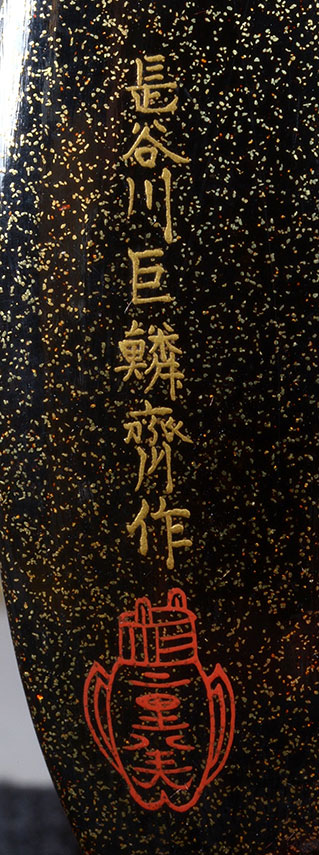 長谷川巨鱗齋作